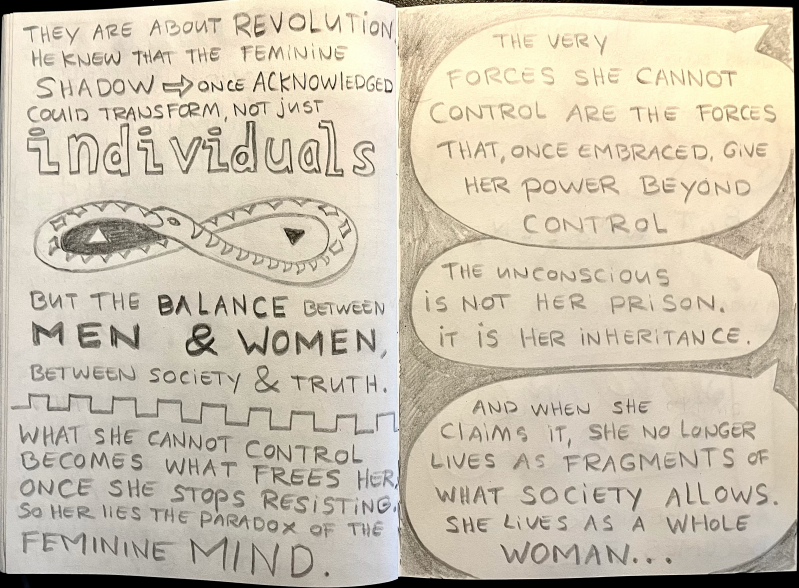 THEY ARE ABOUT REVOLUTION
HE KNEW THAT THE FEMININE
SHADOW ⇨ ONCE ACKNOWLEDGED
COULD TRANSFORM, NOT JUST
individuals
BUT THE BALANCE BETWEEN
MEN & WOMEN,
BETWEEN SOCIETY & TRUTH.
WHAT SHE CANNOT CONTROL
BECOMES WHAT FREES HER,
ONCE SHE STOPS RESISTING.
SO HER LIES THE PARADOX OF THE
FEMININE MIND.
THE VERY
FORCES SHE CANNOT
CONTROL ARE THE FORCES
THAT, ONCE EMBRACED, GIVE
HER POWER BEYOND
CONTROL
THE UNCONSCIOUS
IS NOT HER PRISON.
IT IS HER INHERITANCE.
AND WHEN SHE
CLAIMS IT, SHE NO LONGER
LIVES AS FRAGMENTS OF
WHAT SOCIETY ALLOWS.
SHE LIVES AS A WHOLE
WOMAN...